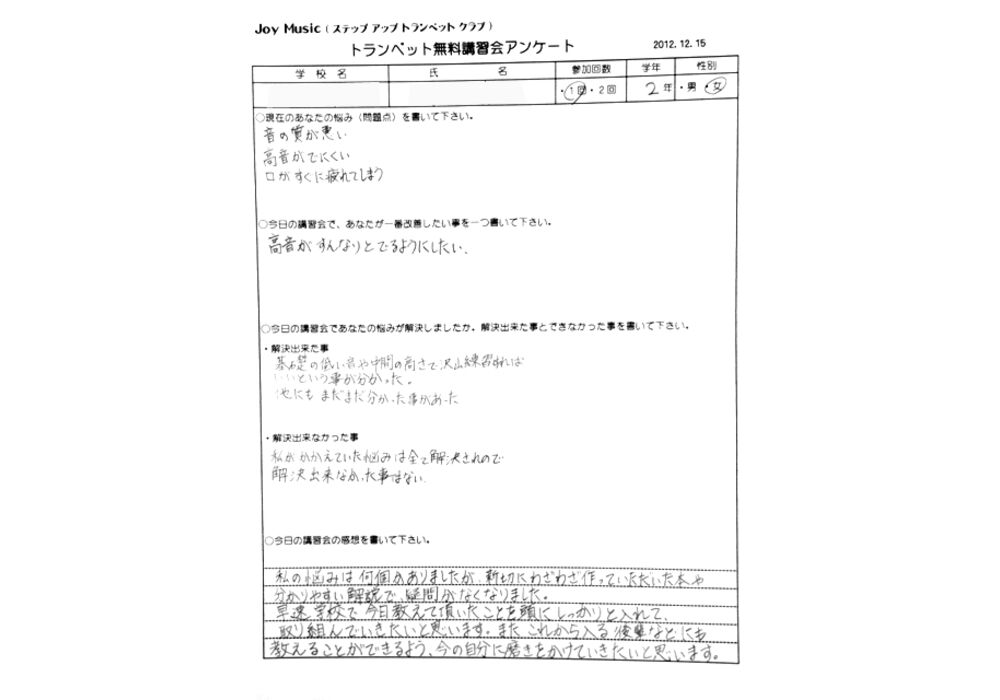 Joy Music ( ステップ アップ トランペット クラブ )
トランペット無料講習会アンケート 2012.12.15
学 校 名 氏 名 参加回数 学年 性別
・1回・2回 2年 ・男・女
○現在のあなたの悩み(問題点)を書いて下さい。
音の質が悪い
高音がでにくい
口がすぐに疲れてしまう
○今日の講習会で、あなたが一番改善したい事を一つ書いて下さい。
高音がすんなりとでるようにしたい、
○今日の講習会であなたの悩みが解決しましたか。解決出来た事とできなかった事を書いて下さい。
・解決出来た事
基礎の低い音や中間の高さで沢山練習すれば
いいという事が分かった。
他にもまだまだ分かった事があった
・解決出来なかった事
私がかかえていた悩みは全て解決されので
解決出来なかった事はない
○今日の講習会の感想を書いて下さい。
私の悩みは何個かありましたが、新切にわざわざ作っていただいた本や
分かりやすい解説で、疑問がなくなりました。
早速学校で今日教えて頂いたことを頭にしっかりと入れて、
取り組んでいきたいと思います。またこれから入る後輩などにも
教えることができるよう、今の自分に磨きをかけていきたいと思います。